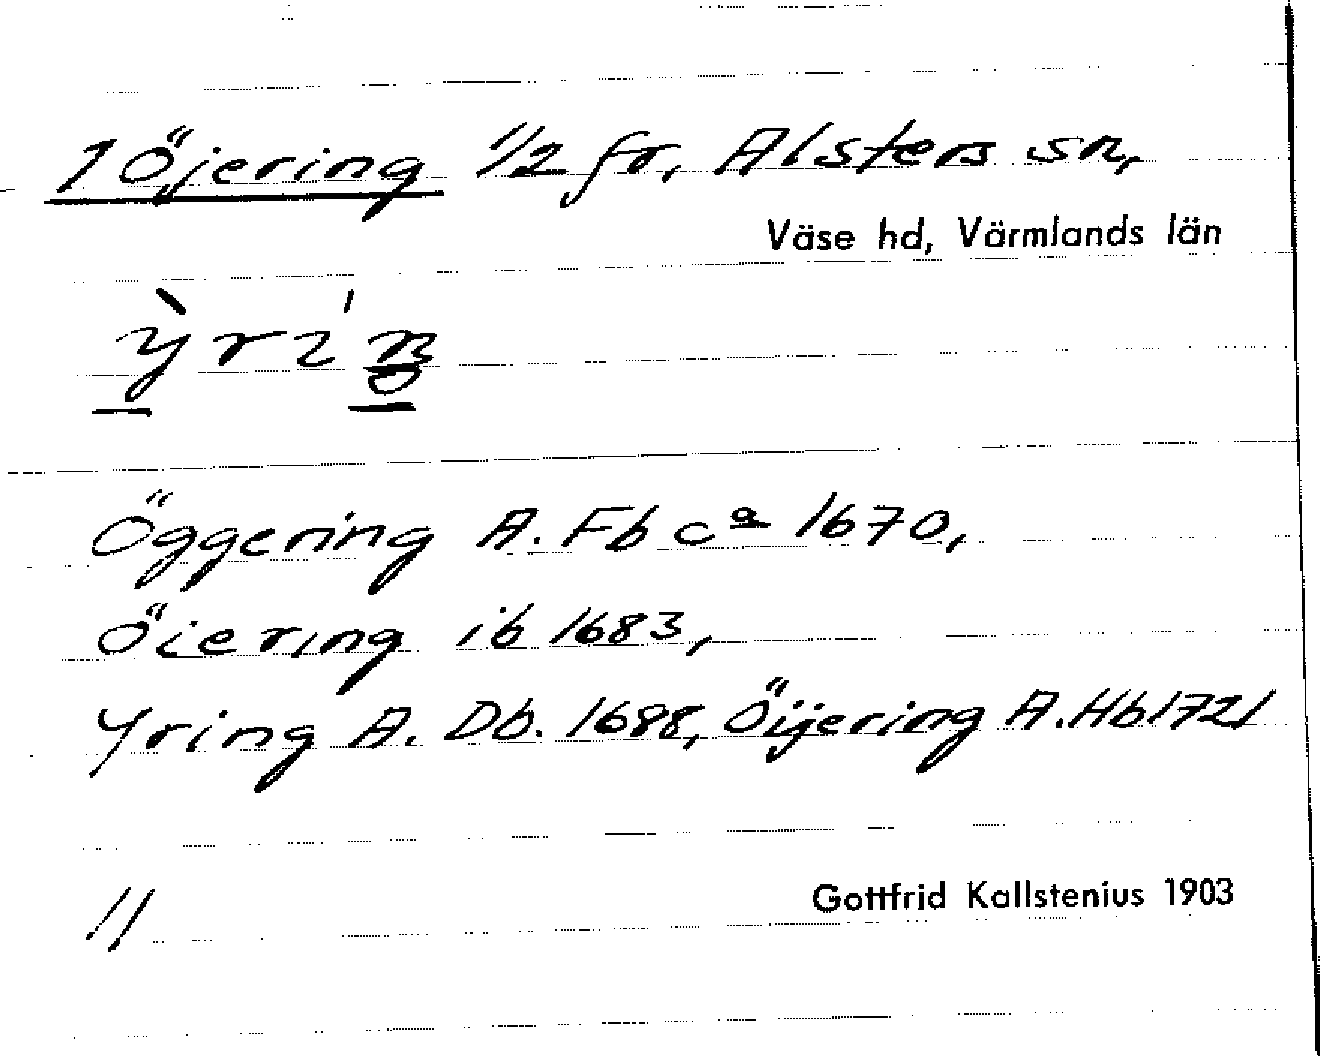 1 Öjering 1/2 fr, Alsters sn,
Väse hd, Värmlands län
Öggering A. Fb cª 1670,
Öiering ib 1683,
Yring A. Db. 1688, Öijering A. Hb 1721
11
Gottfrid Kallstenius 1903